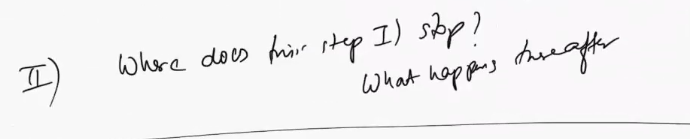 II) Where does this step I) stop?
What happens thereafter